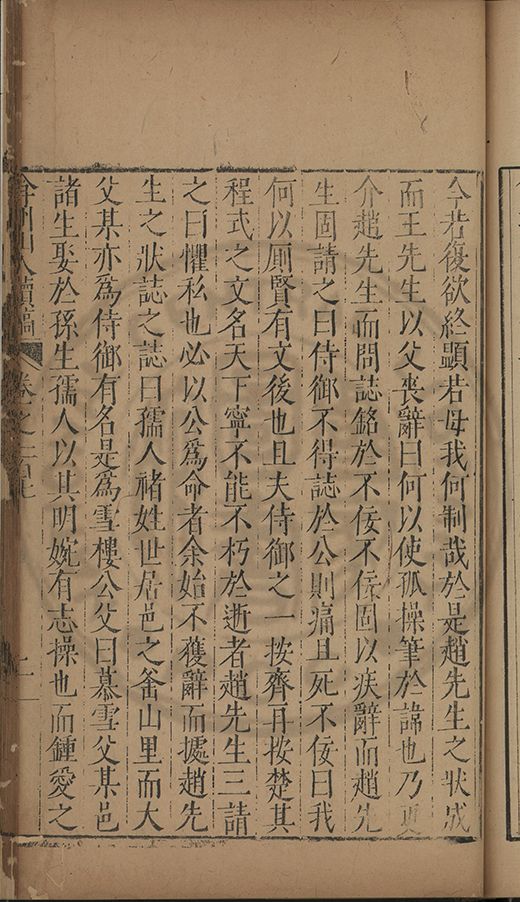 今若復欲終顯若母我何制哉於是趙先生之狀成
而王先生以父喪辭曰何以使孤操筆於諱也乃更
介趙先生而問誌銘於不佞不佞固以疾辭而趙先
生固請之曰侍御不得誌於公則痛且死不佞曰我
何以厠賢有文後也且夫侍御之一按齊再按楚其
程式之文名天下寧不能不朽於逝者趙先生三請
之曰懼私也必以公爲命者余始不獲辭而據趙先
生之狀誌之誌曰孺人禇姓世居邑之釜山里而大
父某亦爲侍御有名是爲雪樓公父曰慕雪父某邑
諸生娶於孫生孺人以其明婉有志操也而鍾愛之
弇州山人續稿 卷之一百七 二十一